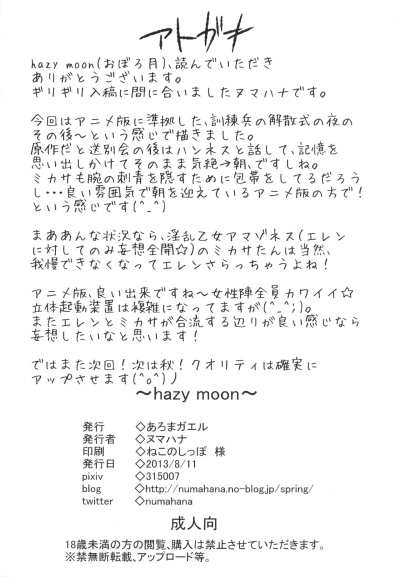 アトガキ
hazy moon(おぼろ月)、読んでいただき
ありがとうございます。
ギリギリ入稿に間に合いましたヌマハナです。
今回はアニメ版に準拠した、訓練兵の解散式の夜の
その後～という感じで描きました。
原作だと送別会の後はハンネスと話して、記憶を
思い出しかけてそのまま気絶→朝、ですしね。
ミカサも腕の刺青を隠すために包帯をしてるだろう
し・・・良い雰囲気で朝を迎えているアニメ版の方で！
という感じです(^_^)
まああんな状況なら、淫乱乙女アマゾネス(エレン
に対してのみ妄想全開☆)のミカサたんは当然、
我慢できなくなってエレンさらっちゃうよね！
アニメ版、良い出来ですね～女性陣全員カワイイ☆
立体起動装置は複雑になってますが(^_^;)。
またエレンとミカサが合流する辺りが良い感じなら
妄想したいなと思います！
ではまた次回！次は秋！クオリティは確実に
アップさせます(^o^)丿
～hazy moon～
発行 ◇あろまガエル
発行者 ◇ヌマハナ
印刷 ◇ねこのしっぽ 様
発行日 ◇2013/8/11
pixiv ◇315007
blog ◇http://numahana.no-blog.jp/spring/
twitter ◇numahana
成人向
18歳未満の方の閲覧、購入は禁止させていただきます。
※禁無断転載、アップロード等。